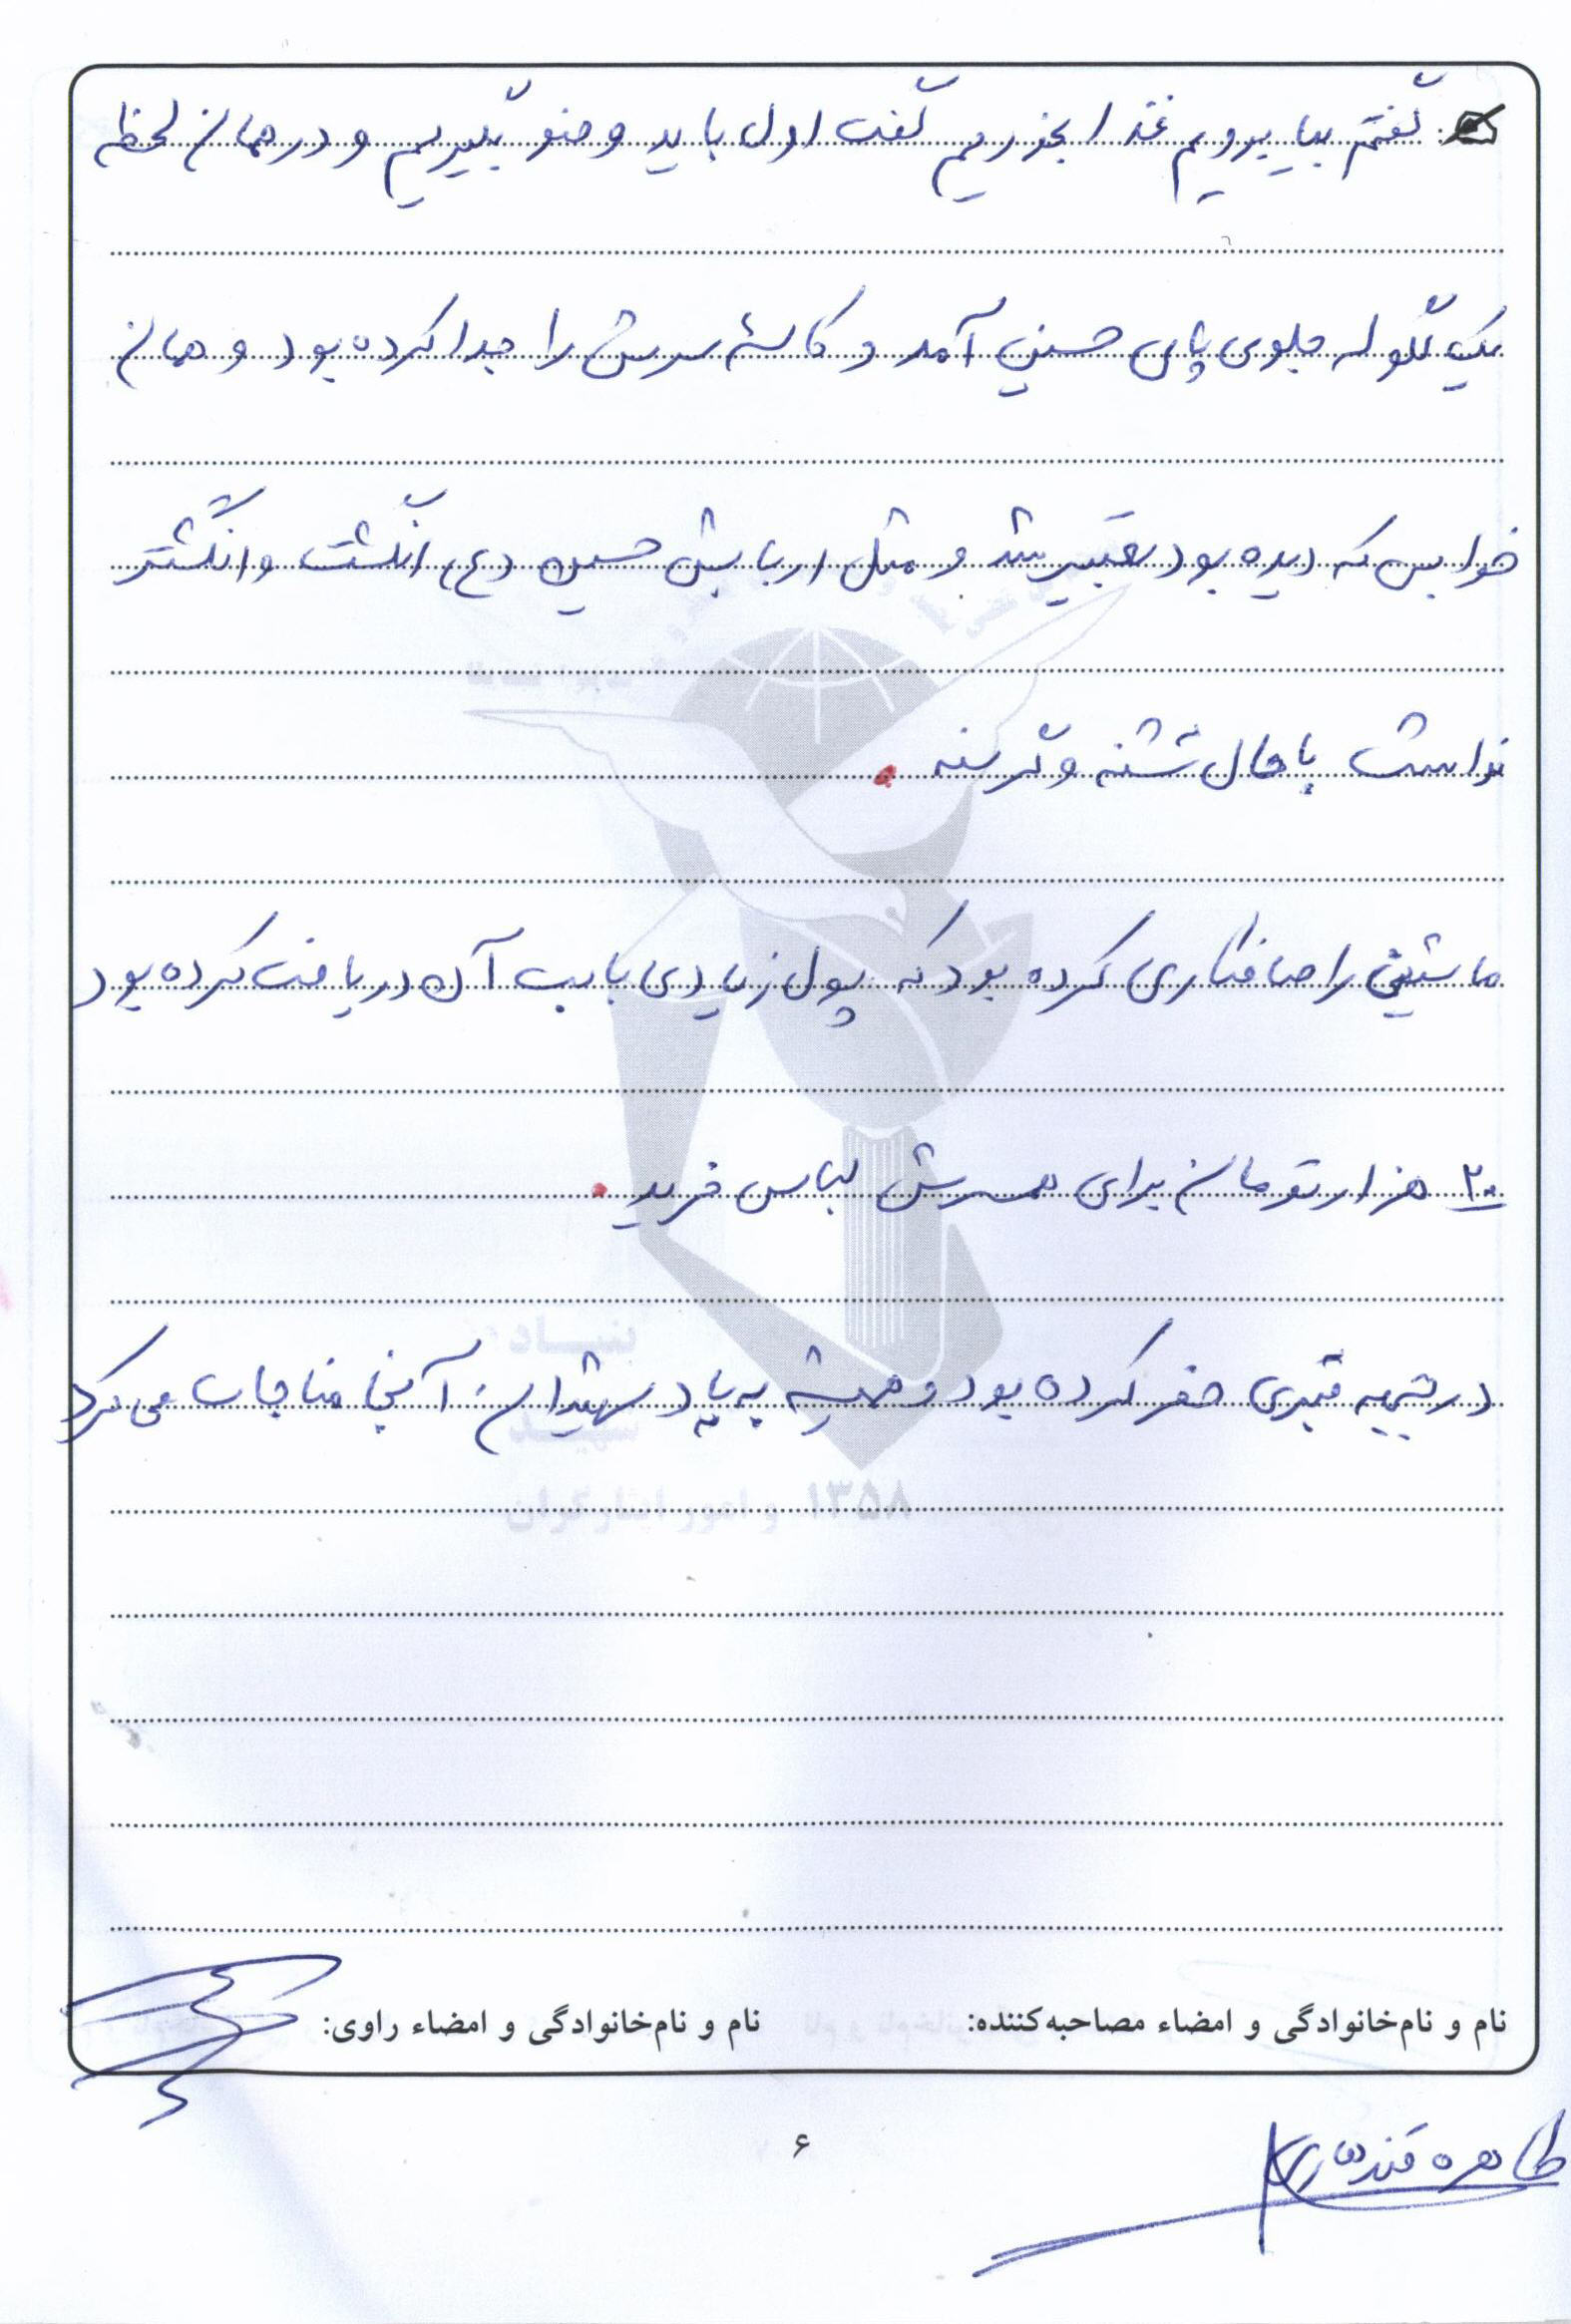 گفتم بیا برویم غذا بخوریم گفت اول باید وضو بگیریم و در همان لحظه
یک گلوله جلوی پای حسین آمد و کاسهٔ سرش را جدا کرده بود و همان
خوابی که دیده بود تعبیر شد و مثل اربابش حسین (ع) انگشت و انگشتر
نداشت با حال تشنه و گرسنه .
ماشینی را صافکاری کرده بود که پول زیادی بابت آن دریافت کرده بود
۲۰ هزار تومان برای همسرش لباس خرید .
در قبری حفر کرده بود و همیشه به یاد شهیدان آنجا مناجات می کرد
بنیاد
شهید
و امور ایثارگران ۱۳۵۸
نام و نام‌خانوادگی و امضاء مصاحبه‌کننده:
نام و نام‌خانوادگی و امضاء راوی:
۶
طاهره قندهاری